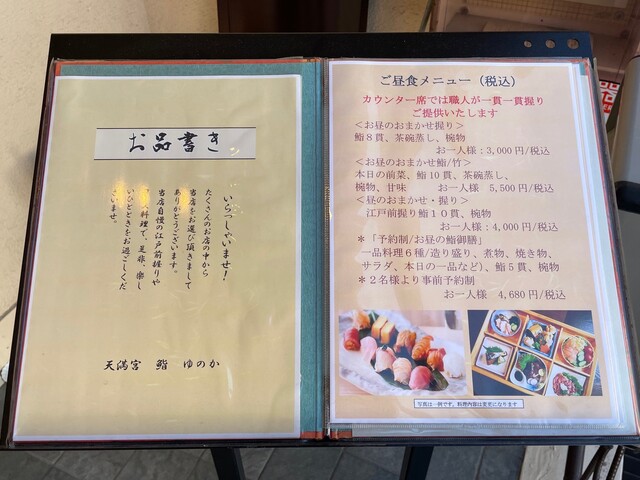 お品書き
いらっしゃいませ！
たくさんのお店の中から
当店をお選び頂きまして
ありがとうございます。
当店自慢の江戸前握りや
料理で、是非、楽し
いひとときをお過ごしくだ
いませ。
天満宮　鮨　ゆのか
ご昼食メニュー（税込）
カウンター席では職人が一貫一貫握り
ご提供いたします
＜お昼のおまかせ握り＞
鮨８貫、茶碗蒸し、椀物
お一人様：3,000円/税込
＜お昼のおまかせ鮨/竹＞
本日の前菜、鮨１０貫、茶碗蒸し、
椀物、甘味　お一人様　5,500円/税込
＜昼のおまかせ・握り＞
江戸前握り鮨１０貫、椀物
お一人様：4,000円/税込
＊「予約制/お昼の鮨御膳」
一品料理６種/造り盛り、煮物、焼き物、
サラダ、本日の一品など）、鮨５貫、椀物
＊２名様より事前予約制
お一人様　4,680円/税込
写真は一例です。料理内容は変更になります